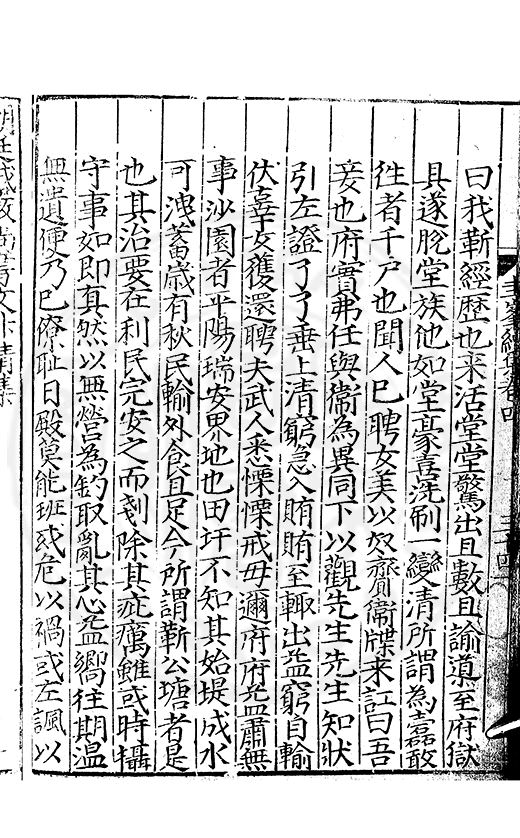 曰我靳經歷也来活堂堂驚出且數且諭導至府獄
具遂脫堂族他如堂豪喜洗刷一變清所謂為蠹敢
徃者千户也聞人巳聘女美以奴齎衞牒来訌曰吾
妾也府實弗任與衞為異同下以觀先生先生知狀
引左證了了垂上清窮急入賄賄至輙出益窮自輸
伏辜女復還聘夫武人悉慄慄戒毋邇府府益肅無
事沙園者平陽瑞安界地也田圩不知其始堤成水
可洩蓄歳有秋民輸外食且足今所謂靳公塘者是
也其治要在利民完安之而剗除其疵癘雖或時攝
守事如即真然以無營為釣取亂其心益嚮徃期溫
無遺便乃巳僚耻日殿莫能班或危以禍或左諷以